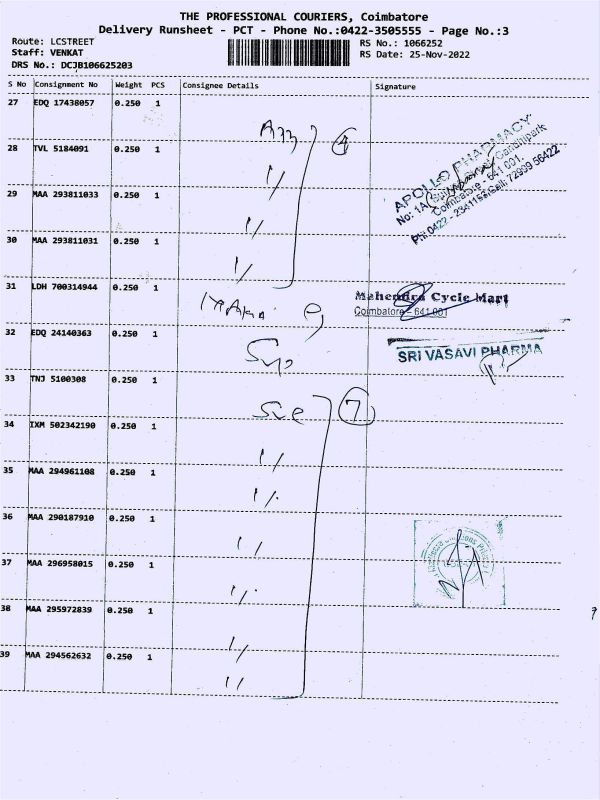 THE PROFESSIONAL COURIERS, Coimbatore
Delivery Runsheet - PCT - Phone No.:0422-3505555 - Page No.:3
Route: LCSTREET
RS No.: 1066252
Staff: VENKAT
RS Date: 25-Nov-2022
DRS No.: DCJB106625203
S No Consignment No Weight PCS Consignee Details Signature
27 EDQ 17438057 0.250 1
28 TVL 5184091 0.250 1
4
APOLLO PHARMACY
Coimbatore - 641 001.
29 MAA 293811033 0.250 1
30 MAA 293811031 0.250 1
31 LDH 700314944 0.250 1
Mahendra Cycle Mart
Coimbatore - 641 001
32 EDQ 24140363 0.250 1
SRI VASAVI PHARMA
33 TNJ 5100308 0.250 1
7
34 IXM 502342190 0.250 1
35 MAA 294961108 0.250 1
36 MAA 290187910 0.250 1
37 MAA 296958015 0.250 1
38 MAA 295972839 0.250 1
39 MAA 294562632 0.250 1